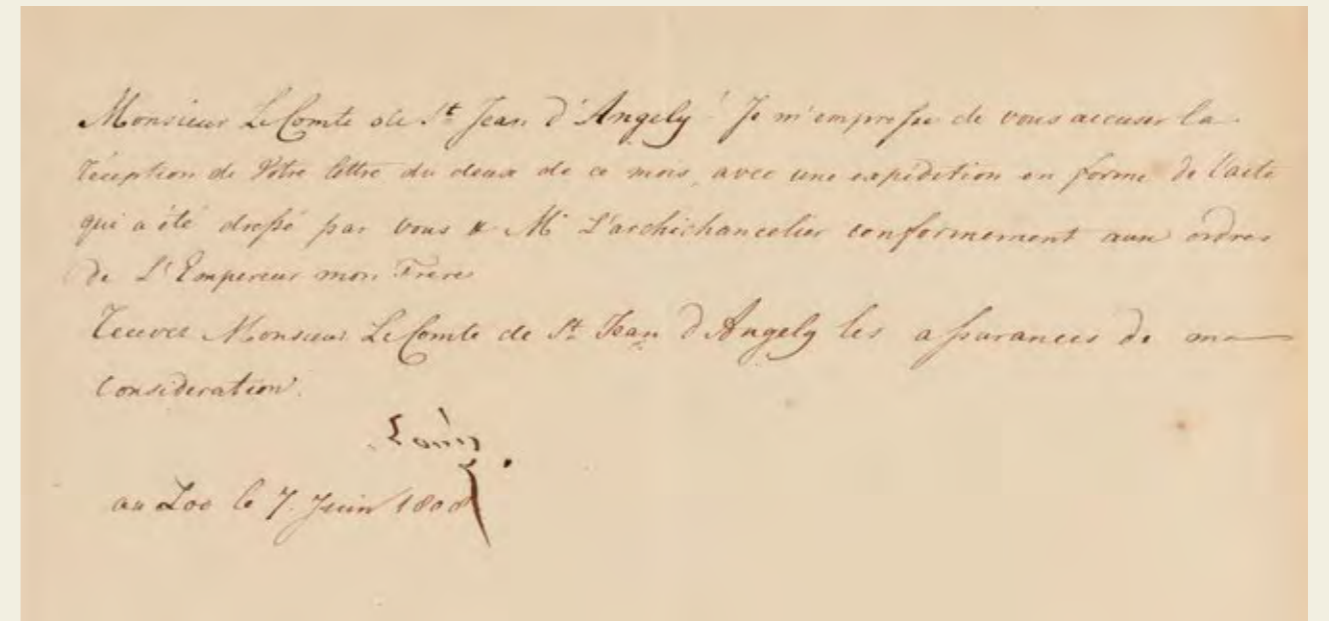 Monsieur Le Comte de St Jean d'Angely! Je m'empresse de vous accuser la
réception de Votre lettre du deux de ce mois, avec une expedition en forme de l'acte
qui a été dressé par vous & Mr L'archichancelier conformement aux ordres
de L'Empereur mon Frere
Recevez Monsieur Le Comte de St Jean d'Angely les assurances de ma
Consideration.
Louis.
au Loo le 7. Juin 1808